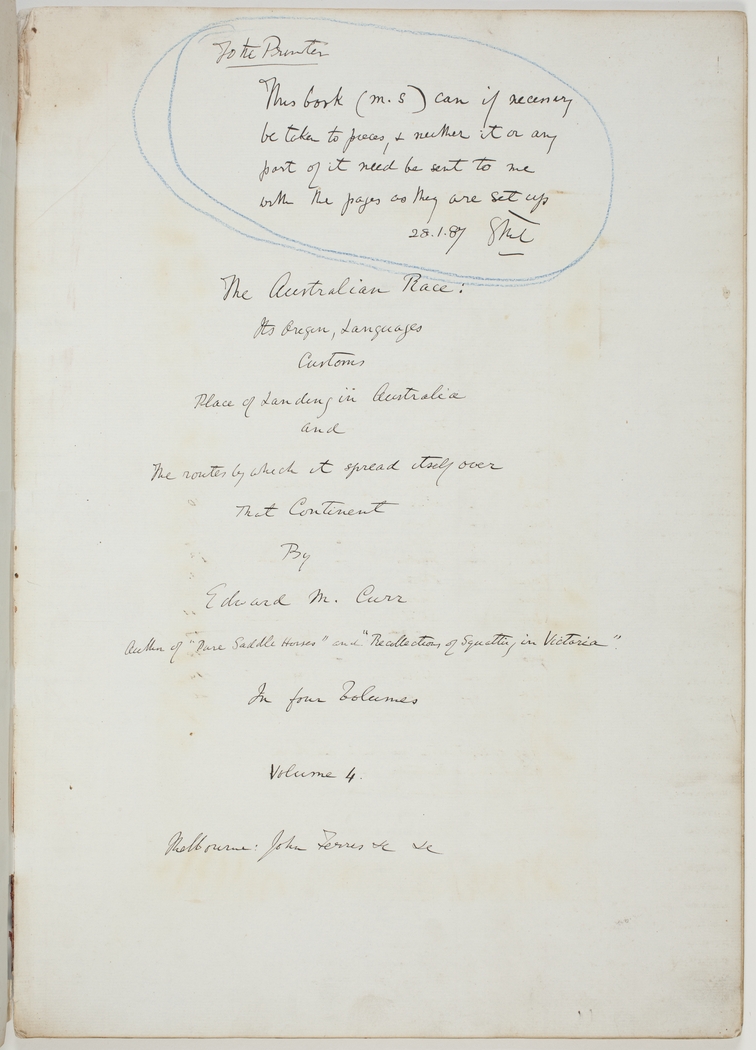 To the Printer
This book (m.s) can if necessary
be taken to pieces, & neither it or any
part of it need be sent to me
with the pages as they are set up
28.1.87
The Australian Race:
Its Origin, Languages
Customs
Place of Landing in Australia
and
The routes by which it spread itself over
That Continent
By
Edward M. Curr
Author of "Pure Saddle Horses" and "Recollections of Squatting in Victoria".
In four Volumes
Volume 4.
Melbourne: John Ferres &c &c